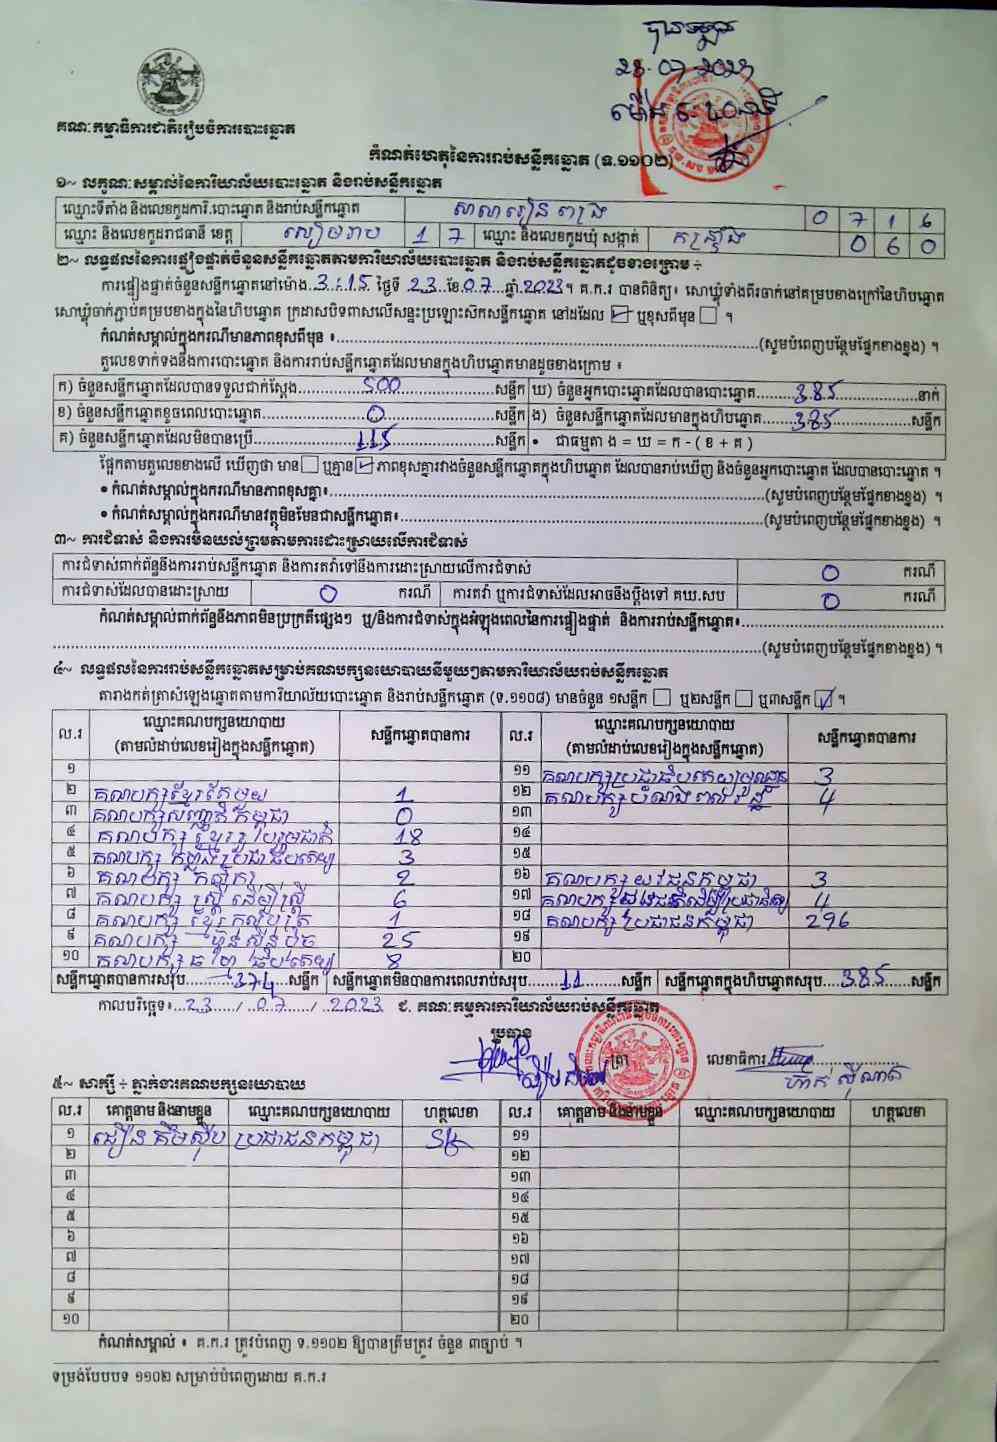 បានទទួល
23-07-2023
គណៈកម្មាធិការជាតិរៀបចំការបោះឆ្នោត
កំណត់ហេតុនៃការរាប់សន្លឹកឆ្នោត (ទ.១១០២)
១~ លក្ខណៈសម្គាល់នៃការិយាល័យបោះឆ្នោត និងរាប់សន្លឹកឆ្នោត
ឈ្មោះទីតាំង និងលេខកូដការិ.បោះឆ្នោត និងរាប់សន្លឹកឆ្នោត សាលារៀន 0 7 1 6
ឈ្មោះ និងលេខកូដរាជធានី ខេត្ត សៀមរាប 1 7 ឈ្មោះ និងលេខកូដឃុំ សង្កាត់ 0 6 0
២~ លទ្ធផលនៃការផ្ទៀងផ្ទាត់ចំនួនសន្លឹកឆ្នោតតាមការិយាល័យបោះឆ្នោត និងរាប់សន្លឹកឆ្នោតដូចខាងក្រោម ÷
ការផ្ទៀងផ្ទាត់ចំនួនសន្លឹកឆ្នោតនៅម៉ោង..3:15 ថ្ងៃទី 23.ខែ.07.ឆ្នាំ.2023។ គ.ក.រ បានពិនិត្យ៖ សោឃ្លុំទាំងពីរចាក់នៅគម្របខាងក្រៅនៃហិបឆ្នោត
សោឃ្លុំចាក់ភ្ជាប់គម្របខាងក្នុងនៃហិបឆ្នោត ក្រដាសបិទពាសលើសន្ទះប្រឡោះសិកសន្លឹកឆ្នោត នៅដដែល ☑ ឬខុសពីមុន ☐ ។
កំណត់សម្គាល់ក្នុងករណីមានភាពខុសពីមុន ៖..........(សូមបំពេញបន្ថែមផ្នែកខាងខ្នង) ។
តួលេខទាក់ទងនឹងការបោះឆ្នោត និងការរាប់សន្លឹកឆ្នោតដែលមានក្នុងហិបឆ្នោតមានដូចខាងក្រោម ៖
ក) ចំនួនសន្លឹកឆ្នោតដែលបានទទួលជាក់ស្ដែង.....500.....សន្លឹក ឃ) ចំនួនអ្នកបោះឆ្នោតដែលបានបោះឆ្នោត.....385.....នាក់
ខ) ចំនួនសន្លឹកឆ្នោតខូចពេលបោះឆ្នោត.....0.....សន្លឹក ង) ចំនួនសន្លឹកឆ្នោតដែលមានក្នុងហិបឆ្នោត.....385.....សន្លឹក
គ) ចំនួនសន្លឹកឆ្នោតដែលមិនបានប្រើ.....115.....សន្លឹក • ជាធម្មតា ង = ឃ = ក - ( ខ + គ )
ផ្អែកតាមតួលេខខាងលើ ឃើញថា មាន ☐ ឬគ្មាន ☑ ភាពខុសគ្នារវាងចំនួនសន្លឹកឆ្នោតក្នុងហិបឆ្នោត ដែលបានរាប់ឃើញ និងចំនួនអ្នកបោះឆ្នោត ដែលបានបោះឆ្នោត ។
• កំណត់សម្គាល់ក្នុងករណីមានភាពខុសគ្នា៖..........(សូមបំពេញបន្ថែមផ្នែកខាងខ្នង) ។
• កំណត់សម្គាល់ក្នុងករណីមានវត្ថុមិនមែនជាសន្លឹកឆ្នោត៖..........(សូមបំពេញបន្ថែមផ្នែកខាងខ្នង) ។
៣~ ការជំទាស់ និងការមិនយល់ព្រមតាមការដោះស្រាយលើការជំទាស់
ការជំទាស់ពាក់ព័ន្ធនឹងការរាប់សន្លឹកឆ្នោត និងការតវ៉ាទៅនឹងការដោះស្រាយលើការជំទាស់ 0 ករណី
ការជំទាស់ដែលបានដោះស្រាយ 0 ករណី ការតវ៉ា ឬការជំទាស់ដែលអាចនឹងប្ដឹងទៅ គឃ.សប 0 ករណី
កំណត់សម្គាល់ពាក់ព័ន្ធនឹងភាពមិនប្រក្រតីផ្សេងៗ ឬ/និងការជំទាស់ក្នុងអំឡុងពេលនៃការផ្ទៀងផ្ទាត់ និងការរាប់សន្លឹកឆ្នោត៖..........
..........(សូមបំពេញបន្ថែមផ្នែកខាងខ្នង) ។
៤~ លទ្ធផលនៃការរាប់សន្លឹកឆ្នោតសម្រាប់គណបក្សនយោបាយនីមួយៗតាមការិយាល័យរាប់សន្លឹកឆ្នោត
តារាងកត់ត្រាសំឡេងឆ្នោតតាមការិយាល័យបោះឆ្នោត និងរាប់សន្លឹកឆ្នោត (ទ.១១០៨) មានចំនួន ១សន្លឹក ☐ ឬ២សន្លឹក ☐ ឬ៣សន្លឹក ☑ ។
ល.រ ឈ្មោះគណបក្សនយោបាយ (តាមលំដាប់លេខរៀងក្នុងសន្លឹកឆ្នោត) សន្លឹកឆ្នោតបានការ ល.រ ឈ្មោះគណបក្សនយោបាយ (តាមលំដាប់លេខរៀងក្នុងសន្លឹកឆ្នោត) សន្លឹកឆ្នោតបានការ
១ ១១ គណបក្សប្រជាធិបតេយ្យមូលដ្ឋាន 3
២ គណបក្សខ្មែរតែមួយ 1 ១២ គណបក្ស 4
៣ គណបក្សសញ្ជាតិកម្ពុជា 0 ១៣
៤ គណបក្សខ្មែររួបរួមជាតិ 18 ១៤
៥ គណបក្សកម្លាំងប្រជាធិបតេយ្យ 3 ១៥
៦ គណបក្សកសិករ 2 ១៦ គណបក្សយុវជនកម្ពុជា 3
៧ គណបក្សស្ត្រីដើម្បីស្ត្រី 6 ១៧ គណបក្ស 4
៨ គណបក្ស 1 ១៨ គណបក្សប្រជាជនកម្ពុជា 296
៩ គណបក្ស ហ៊្វុនស៊ិនប៉ិច 25 ១៩
១០ គណបក្ស 8 ២០
សន្លឹកឆ្នោតបានការសរុប.....374.....សន្លឹក សន្លឹកឆ្នោតមិនបានការពេលរាប់សរុប.....11.....សន្លឹក សន្លឹកឆ្នោតក្នុងហិបឆ្នោតសរុប.....385.....សន្លឹក
កាលបរិច្ឆេទ៖...23..../..07..../..2023 ជ. គណៈកម្មការការិយាល័យរាប់សន្លឹកឆ្នោត
ប្រធាន
ត្រា លេខាធិការ
៥~ សាក្សី ÷ ភ្នាក់ងារគណបក្សនយោបាយ
ល.រ គោត្តនាម និងនាមខ្លួន ឈ្មោះគណបក្សនយោបាយ ហត្ថលេខា ល.រ គោត្តនាម និងនាមខ្លួន ឈ្មោះគណបក្សនយោបាយ ហត្ថលេខា
១ ប្រជាជនកម្ពុជា ១១
២ ១២
៣ ១៣
៤ ១៤
៥ ១៥
៦ ១៦
៧ ១៧
៨ ១៨
៩ ១៩
១០ ២០
កំណត់សម្គាល់ ៖ គ.ក.រ ត្រូវបំពេញ ទ.១១០២ ឱ្យបានត្រឹមត្រូវ ចំនួន ៣ច្បាប់ ។
ទម្រង់បែបបទ ១១០២ សម្រាប់បំពេញដោយ គ.ក.រ